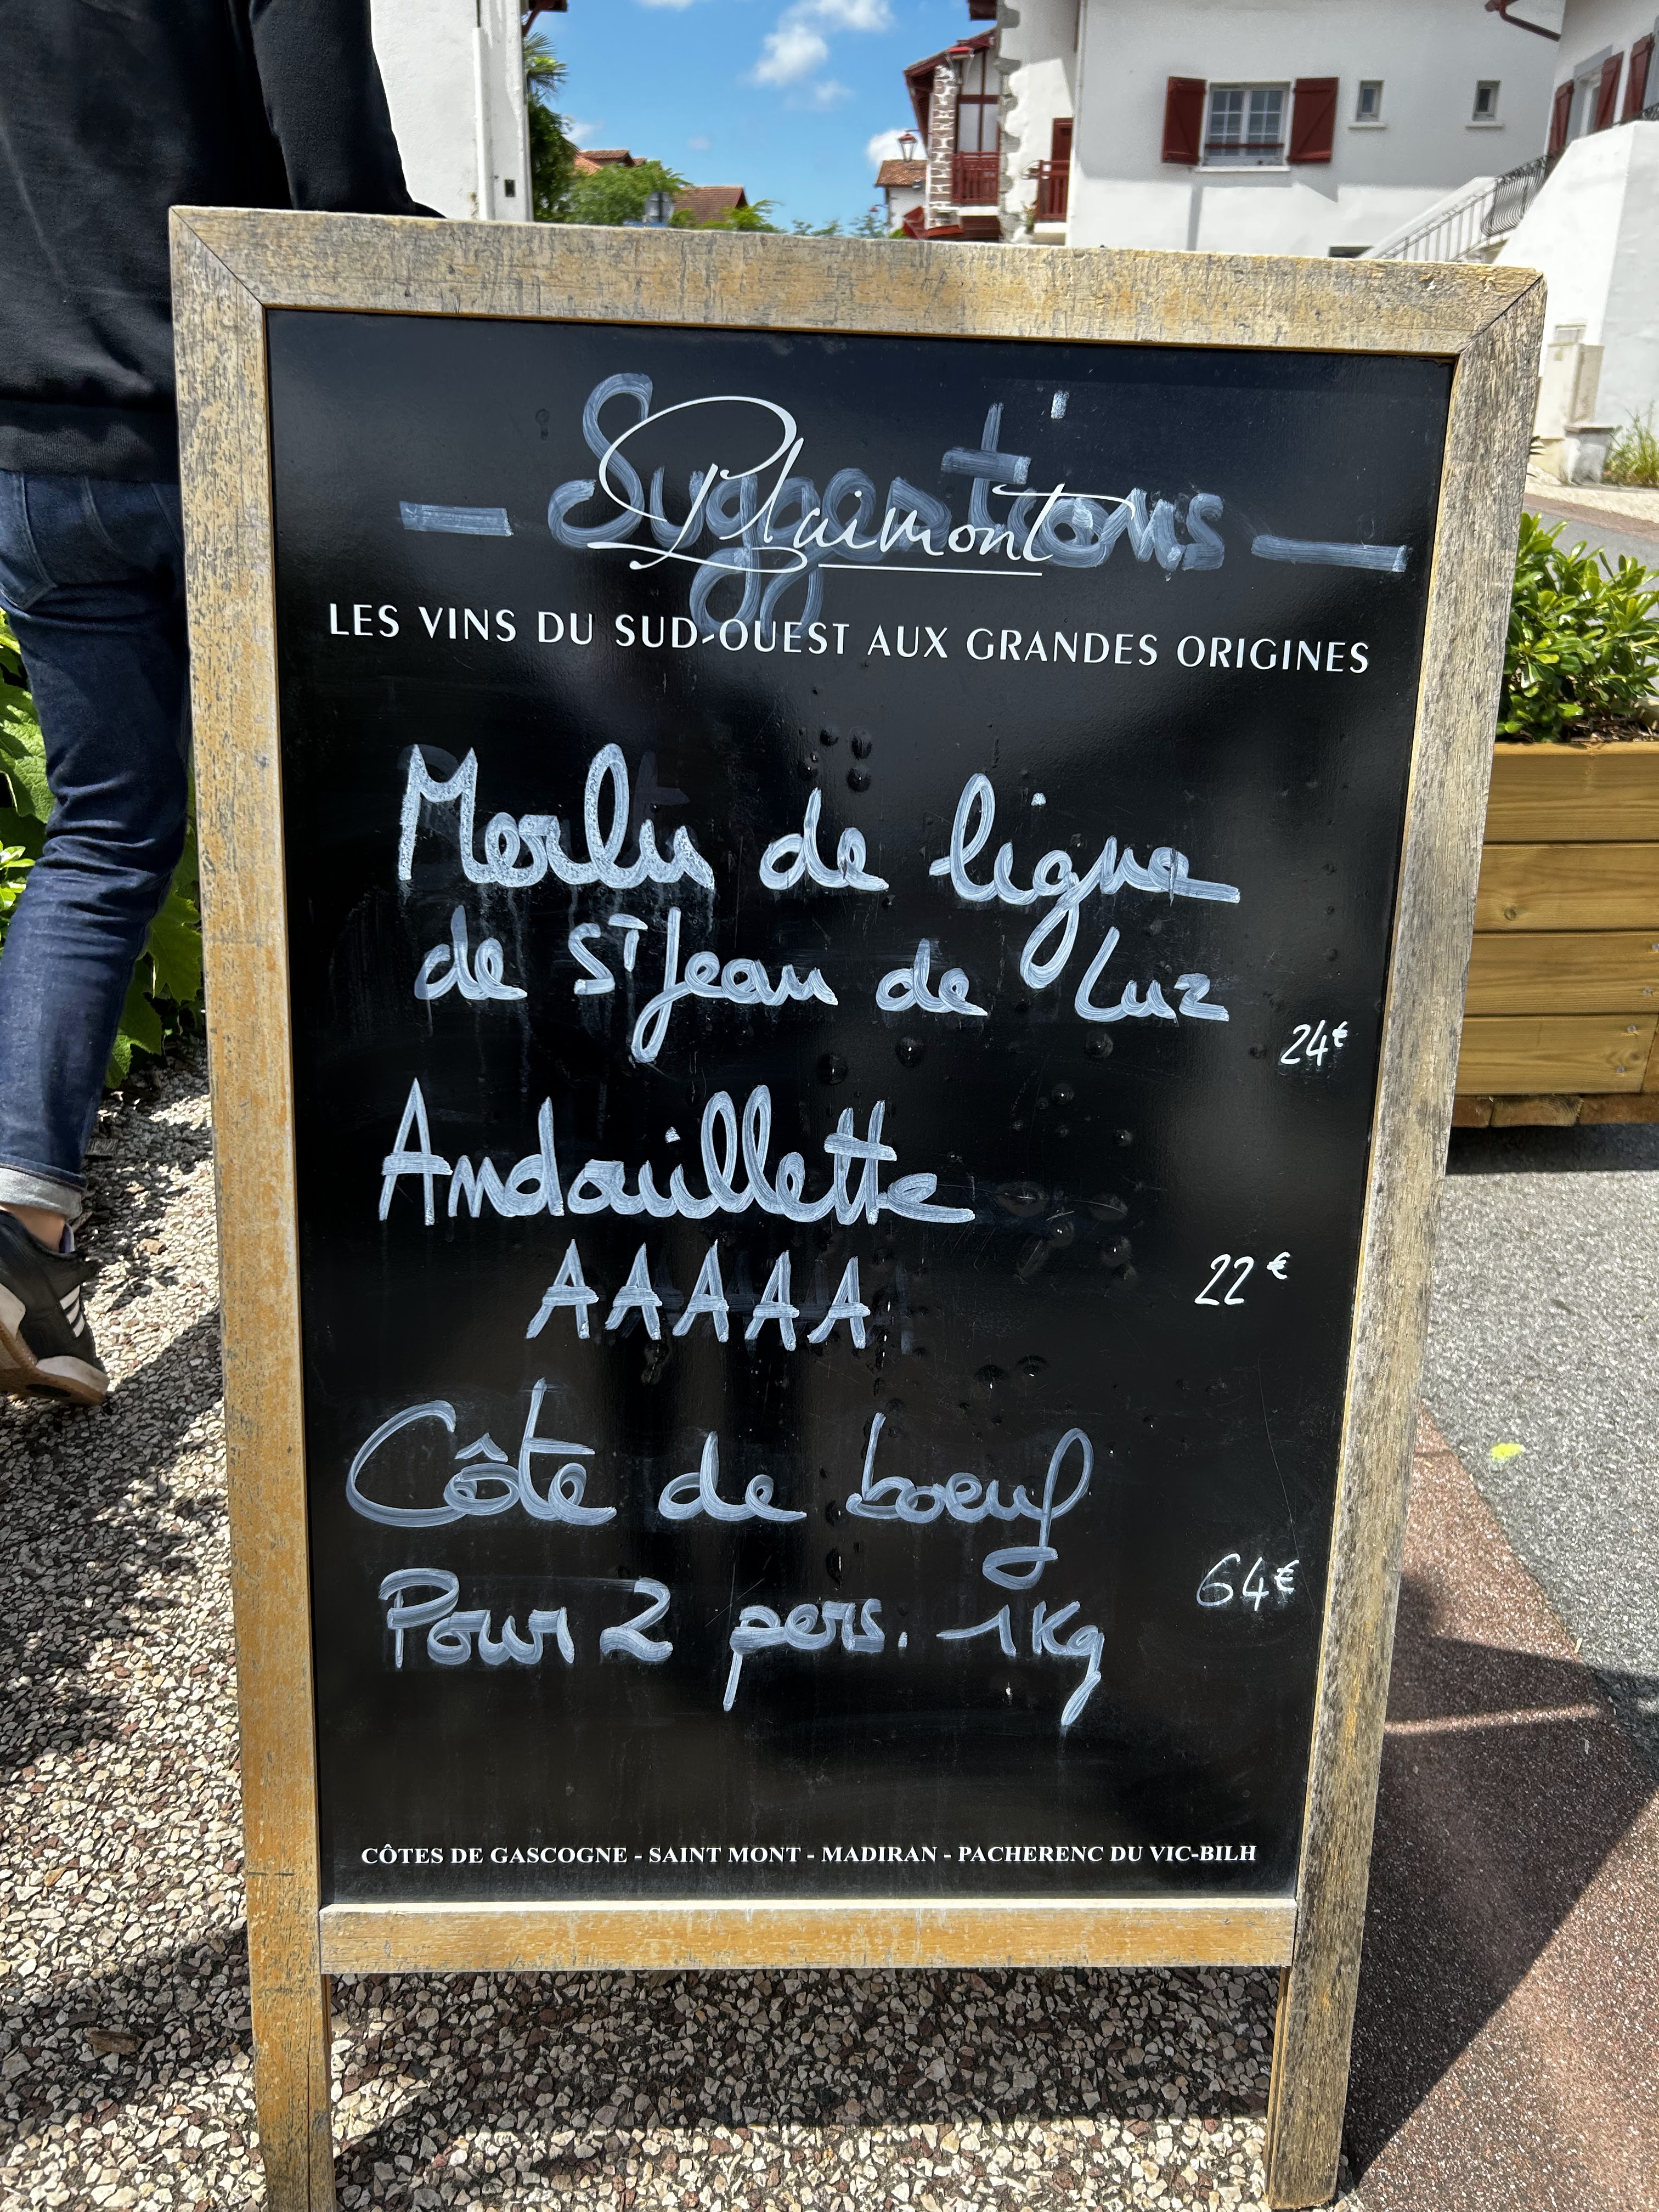 — Suggestions —
Plaimont
LES VINS DU SUD-OUEST AUX GRANDES ORIGINES
Merlu de ligne
de ST Jean de Luz
24€
Andouillette
AAAAA
22€
Côte de boeuf
64€
Pour 2 pers. 1Kg
CÔTES DE GASCOGNE - SAINT MONT - MADIRAN - PACHERENC DU VIC-BILH